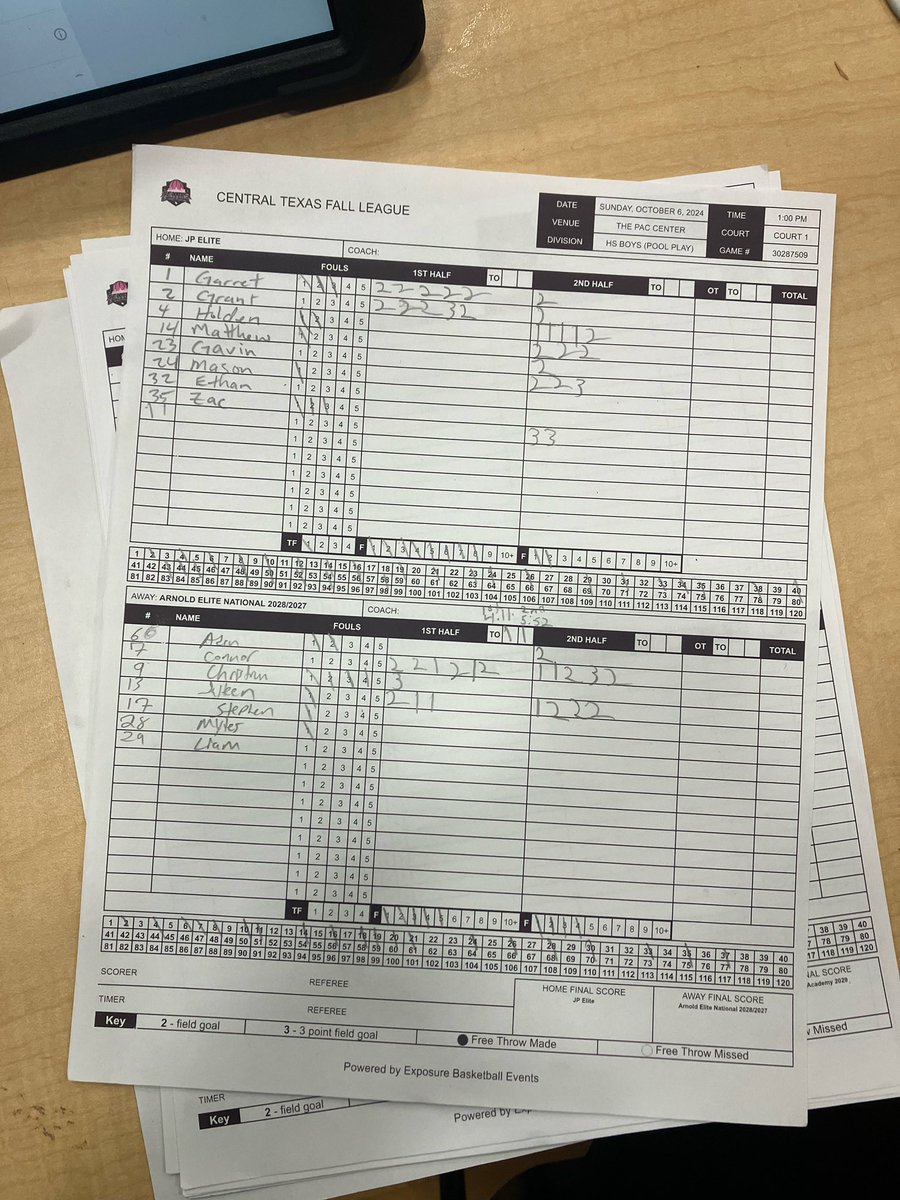 CENTRAL TEXAS FALL LEAGUE
DATE SUNDAY, OCTOBER 6, 2024 TIME 1:00 PM
VENUE THE PAC CENTER COURT COURT 1
DIVISION HS BOYS (POOL PLAY) GAME # 30287509
HOME: JP ELITE COACH:
# NAME FOULS 1ST HALF TO 2ND HALF TO OT TO TOTAL
1 Garret 1 2 3 4 5 2 2 2 2 2 2 2
2 Grant 1 2 3 4 5 2 2 2 3 2 2
4 Holden 1 2 3 4 5 1 1 1 1 2
14 Matthew 1 2 3 4 5 2 2 2
23 Gavin 1 2 3 4 5 2
24 Mason 1 2 3 4 5 2 2 3
32 Ethan 1 2 3 4 5
35 Zac 1 2 3 4 5
11 1 2 3 4 5 3 3
1 2 3 4 5
1 2 3 4 5
1 2 3 4 5
1 2 3 4 5
1 2 3 4 5
1 2 3 4 5
TF 1 2 3 4 F 1 2 3 4 5 6 7 8 9 10+ F 1 2 3 4 5 6 7 8 9 10+
1 2 3 4 5 6 7 8 9 10 11 12 13 14 15 16 17 18 19 20 21 22 23 24 25 26 27 28 29 30 31 32 33 34 35 36 37 38 39 40
41 42 43 44 45 46 47 48 49 50 51 52 53 54 55 56 57 58 59 60 61 62 63 64 65 66 67 68 69 70 71 72 73 74 75 76 77 78 79 80
81 82 83 84 85 86 87 88 89 90 91 92 93 94 95 96 97 98 99 100 101 102 103 104 105 106 107 108 109 110 111 112 113 114 115 116 117 118 119 120
AWAY: ARNOLD ELITE NATIONAL 2028/2027 COACH: 4:11 5:52
# NAME FOULS 1ST HALF TO 2ND HALF TO OT TO TOTAL
Aden 1 2 3 4 5 2
7 Connor 1 2 3 4 5 2 2 1 2 1 2 1 1 2 3 2
9 Christian 1 2 3 4 5 3
13 1 2 3 4 5 2 1 1 1 2 2 2
17 Stephen 1 2 3 4 5
28 Myles 1 2 3 4 5
29 Liam 1 2 3 4 5
1 2 3 4 5
1 2 3 4 5
1 2 3 4 5
1 2 3 4 5
1 2 3 4 5
1 2 3 4 5
1 2 3 4 5
1 2 3 4 5
TF 1 2 3 4 F 1 2 3 4 5 6 7 8 9 10+ F 1 2 3 4 5 6 7 8 9 10+
1 2 3 4 5 6 7 8 9 10 11 12 13 14 15 16 17 18 19 20 21 22 23 24 25 26 27 28 29 30 31 32 33 34 35 36 37 38 39 40
41 42 43 44 45 46 47 48 49 50 51 52 53 54 55 56 57 58 59 60 61 62 63 64 65 66 67 68 69 70 71 72 73 74 75 76 77 78 79 80
81 82 83 84 85 86 87 88 89 90 91 92 93 94 95 96 97 98 99 100 101 102 103 104 105 106 107 108 109 110 111 112 113 114 115 116 117 118 119 120
SCORER REFEREE HOME FINAL SCORE AWAY FINAL SCORE
JP Elite Arnold Elite National 2028/2027
TIMER REFEREE
Key 2 - field goal 3 - 3 point field goal Free Throw Made Free Throw Missed
Powered by Exposure Basketball Events
38 39 40
78 79 80
117 118 119 120
NAL SCORE
Academy 2028
Missed
TIMER
Key 2 - field goal
Powered by